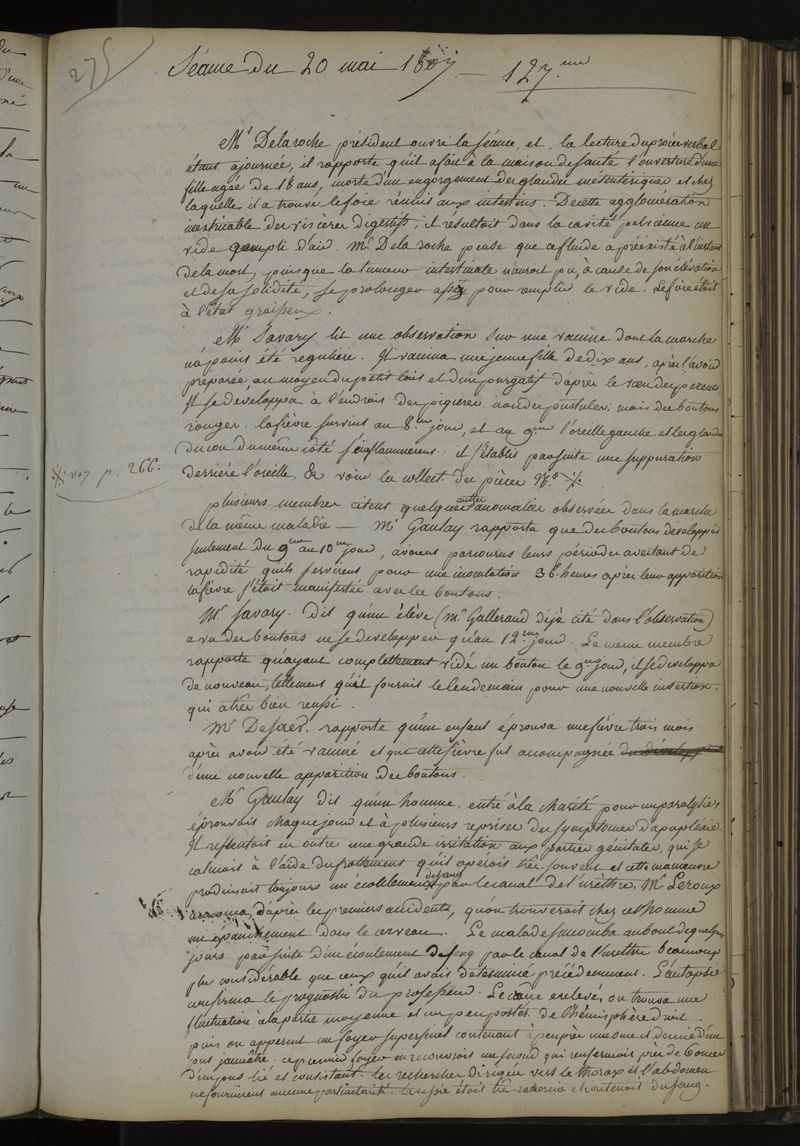 275
Séance du 20 mai 1807. — 127.me
Mr Delaroche président ouvre la séance, et, la lecture du procès verbal
étant ajournée, il rapporte qu'il a fait à la maison de santé l'ouverture d'une
fille agée de 18 ans, morte d'un engorgement des glandes mésentériques et chez
laquelle il a trouvé le foie réuni aux intestins. De cette agglomération
inextricable des viscères digestifs, il résultoit dans la cavité pelvienne un
vide rempli d'air. Mr Delaroche pense que ce fluide a préexisté à l'instant
de la mort, puisque la tumeur intestinale n'auroit pu, à cause de son élévation
et de sa solidité, se prolonger assez pour remplir le vide. Le foie étoit
à l'état graisseux.
Mr Savary lit une observation sur une vaccine dont la marche
n'a point été régulière. Il vaccina une jeune fille de dix ans, après l'avoir
préparée, au moyen du petit lait et d'un purgatif d'après le vœu des parents.
Il se développa à l'endroit des piqures non des pustules, mais des boutons
rouges. la fièvre survint au 8.me jour, et au 9.me l'oreille gauche et les glandes
du cou du même côté s'enflammèrent: il s'établit par suite une suppuration
derrière l'oreille, &c voir la collect. des pièces No
voy p. 266.
plusieurs membres citent quelques autres anomalies observées dans la marche
de la même maladie — Mr Gaulay rapporte que des boutons développés
seulement du 9me au 10me jour, avoient parcourus leurs périodes avec tant de
rapidité qu'ils servirent pour une inoculation 36 heures après leur apparition
la fièvre s'étoit manifestée avec les boutons.
Mr Savary. Dit qu'un élève (Mr Gallerand déjà cité dans l'observation)
a vu des boutons ne se développer qu'au 12.me jour. Le même membre
rapporte qu'ayant complettement vidé un bouton le 9me jour, il se développa
de nouveau, tellement qu'il fournit le lendemain pour une nouvelle insertion
qui a très bien reussi.
Mr rapporte qu'un enfant éprouva une fièvre trois mois
après avoir été vacciné et que cette fièvre fut accompagnée
d'une nouvelle apparition des boutons.
Mr Gaulay dit qu'un homme, entré à la charité pour une paralysie,
éprouvoit chaque jour et à plusieurs reprises des symptomes d'apoplexie.
Il ressentoit en outre une grande irritation aux parties génitales, qui se
calmoit à l'aide du frottement qu'il opéroit très souvent et cette manœuvre
produisoit toujours un écoulement de sang par le canal de l'urèthre. Mr Leroux
d'après les premiers accidents, qu'on trouveroit chez cet homme
un épanchement dans le cerveau. Le malade succomba au bout de quelques
jours par suite d'un écoulement de sang par le canal de l'urethre beaucoup
plus considérable que ceux qu'il avoit déterminé précédemment. L'autopsie
confirma le prognostic du professeur. Le crâne enlevé, on trouva une
fluctuation à la partie moyenne et un peu postér. de l'hémisphère droit
puis on apperçut un foyer superficiel contenant à peu près une once et demie d'un
pus jaunâtre. ce premier foyer en recouvroit un second qui renfermoit près de 6 onces
d'un pus lié et consistant. les recherches dirigées vers le thorax et l'abdomen
ne fournirent aucune particularité. la vessie étoit très racornie et contenoit du sang.